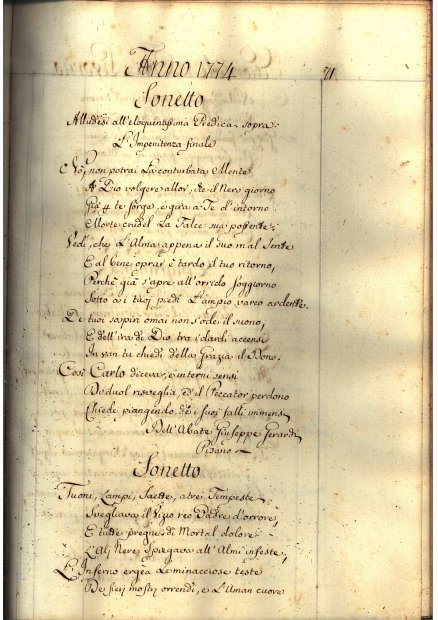 Anno 1774
71
Sonetto
Alludesi all'eloquentissima Predica sopra
L'Impenitenza finale
Nò, non potrai La conturbata Mente
A Dio volgere allor, che il Nero giorno
Già p te sorge, e gira a Te d'intorno
Morte crudel La Falce sua possente.
Vedi, che L'Alma appena il suo mal sente
E al bene oprar è tardo il tuo ritorno,
Perchè già s'apre all'orrido soggiorno
Sotto a i tuoi piedi L'ampio varco ardente,
De tuoi sospiri omai non s'ode il suono,
E dell'ira di Dio tra i dardi accensi
In van tu chiedi della Grazia il Dono.
Così Carlo diceva, e interni sensi
Di duol risveglia, ed il Peccator perdono
Chiede piangendo de i suoi falli immensi
Dell'Abate Giuseppe Gerardi
Pisano
Sonetto
Tuoni, Lampi, Saette, atre Tempeste
Svegliava il Vizio reo Padre d'orrore,
E tutte pregne di Mortal dolore
L'Ali Nere spiegava all'Almi infeste,
L'Inferno ergea Le minacciose teste
De fieri mostri orrendi, e L'Uman cuore